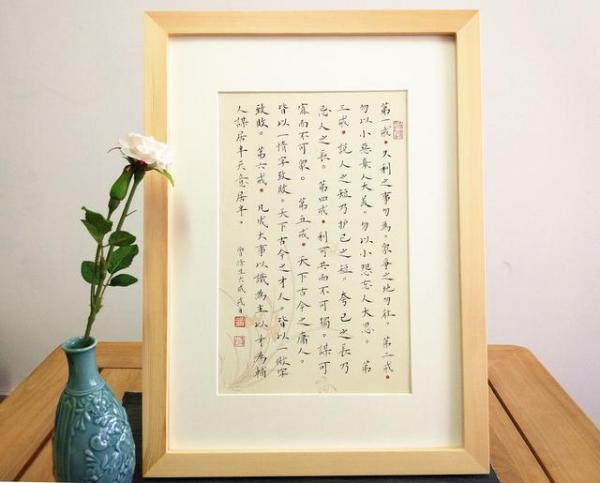 第一戒。久利之事勿為。眾爭之地勿往。第二戒。
勿以小惡棄人大美。勿以小怨忘人大恩。第
三戒。說人之短乃护己之短。夸己之長乃
忌人之長。第四戒。利可共而不可獨。謀可
寡而不可眾。第五戒。天下古今之庸人。
皆以一惰字致敗。天下古今之才人。皆以一傲字
致敗。第六戒。凡成大事以識為主以才為輔
人謀居半天意居半。
曾滌生六戒